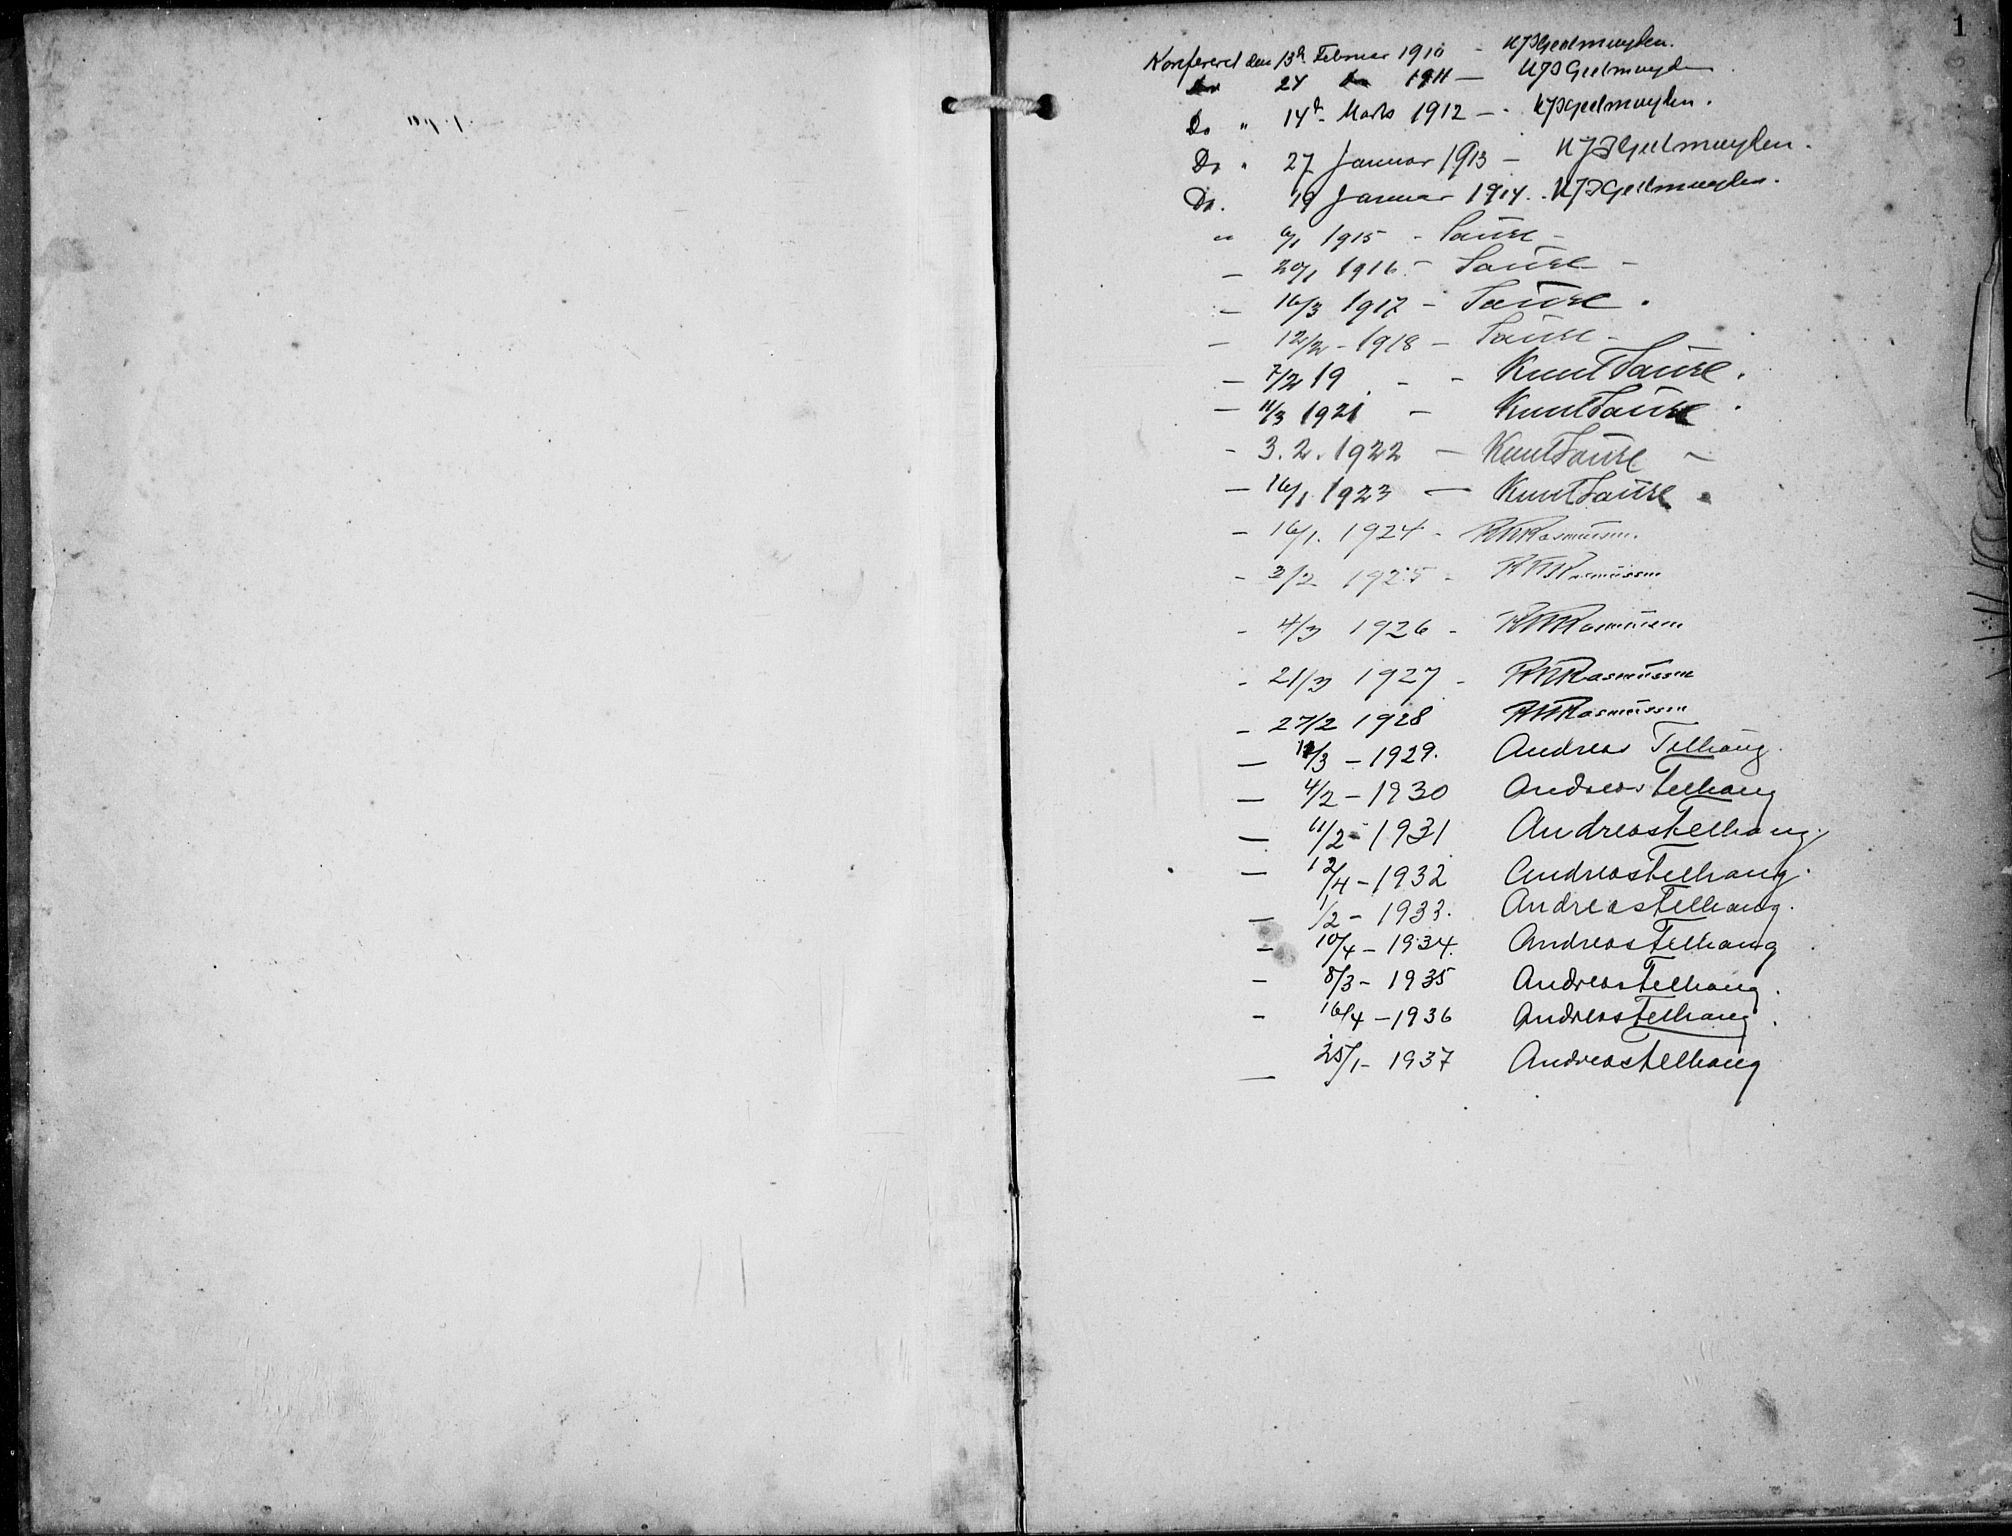 1
Konfereret den 13de Februar 1910 - HJSGeelmuyden.
Do 24 Do 1911 - HJSGeelmuyden
Do " 14de Marts 1912 - HJSGeelmuyden.
Do " 27 Januar 1913 - HJSGeelmuyden.
Do. 19 Januar 1914. - HJSGeelmuyden.
" 6/1 1915 - Saure -
- 20/1 1916. - Saure -
- 16/3 1917 - Saure.
- 12/2 - 1918 - Saure -
- 7/2 19 - - Knut Saure.
- 11/3 1921 - Knut Saure.
- 3.2.1922 - Knut Saure -
- 16/1 1923 - Knut Saure.
- 16/1. 1924 - Rasmussen.
- 3/2 1925 - Rasmussen
- 4/3 1926 - Rasmussen
- 21/3 1927 - Rasmussen
- 27/2 1928 Rasmussen
- /3 - 1929. Andreas Telhaug.
- 4/2 - 1930 Andreas Telhaug
- 11/2 - 1931 Andreas Telhaug.
- 12/4 - 1932 Andreas Telhaug.
- 1/2 - 1933. Andreas Telhaug.
- 10/4 - 1934. Andreas Telhaug
- 8/3 - 1935 Andreas Telhaug.
- 16/4 - 1936 Andreas Telhaug.
- 25/1 - 1937 Andreas Telhaug